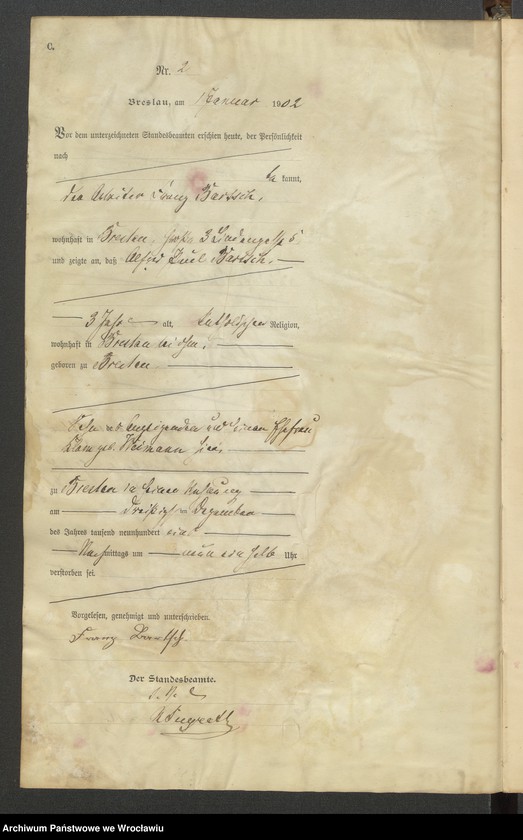 C.
Nr. 2
Breslau, am 1 Januar 1902
Vor dem unterzeichneten Standesbeamten erschien heute, der Persönlichkeit
nach
be kannt,
der Arbeiter Franz Bartsch,
wohnhaft in Breslau,
und zeigte an, daß Alfred Paul Bartsch,
3 Jahre alt, katholischer Religion,
wohnhaft in Breslau bei ihm,
geboren zu Breslau
Sohn des Anzeigenden und seiner Ehefrau
geb.
zu Breslau in seiner Wohnung
am Dreißigsten Dezember
des Jahres tausend neunhundert eins
Nachmittags um neun ein halb Uhr
verstorben sei.
Vorgelesen, genehmigt und unterschrieben.
Franz Bartsch.
Der Standesbeamte.
Archiwum Państwowe we Wrocławiu